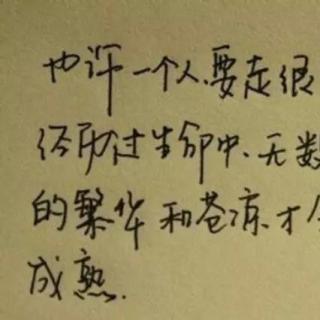 也许一个人要走很
经历过生命中、无数
的繁华和苍凉才
成熟.